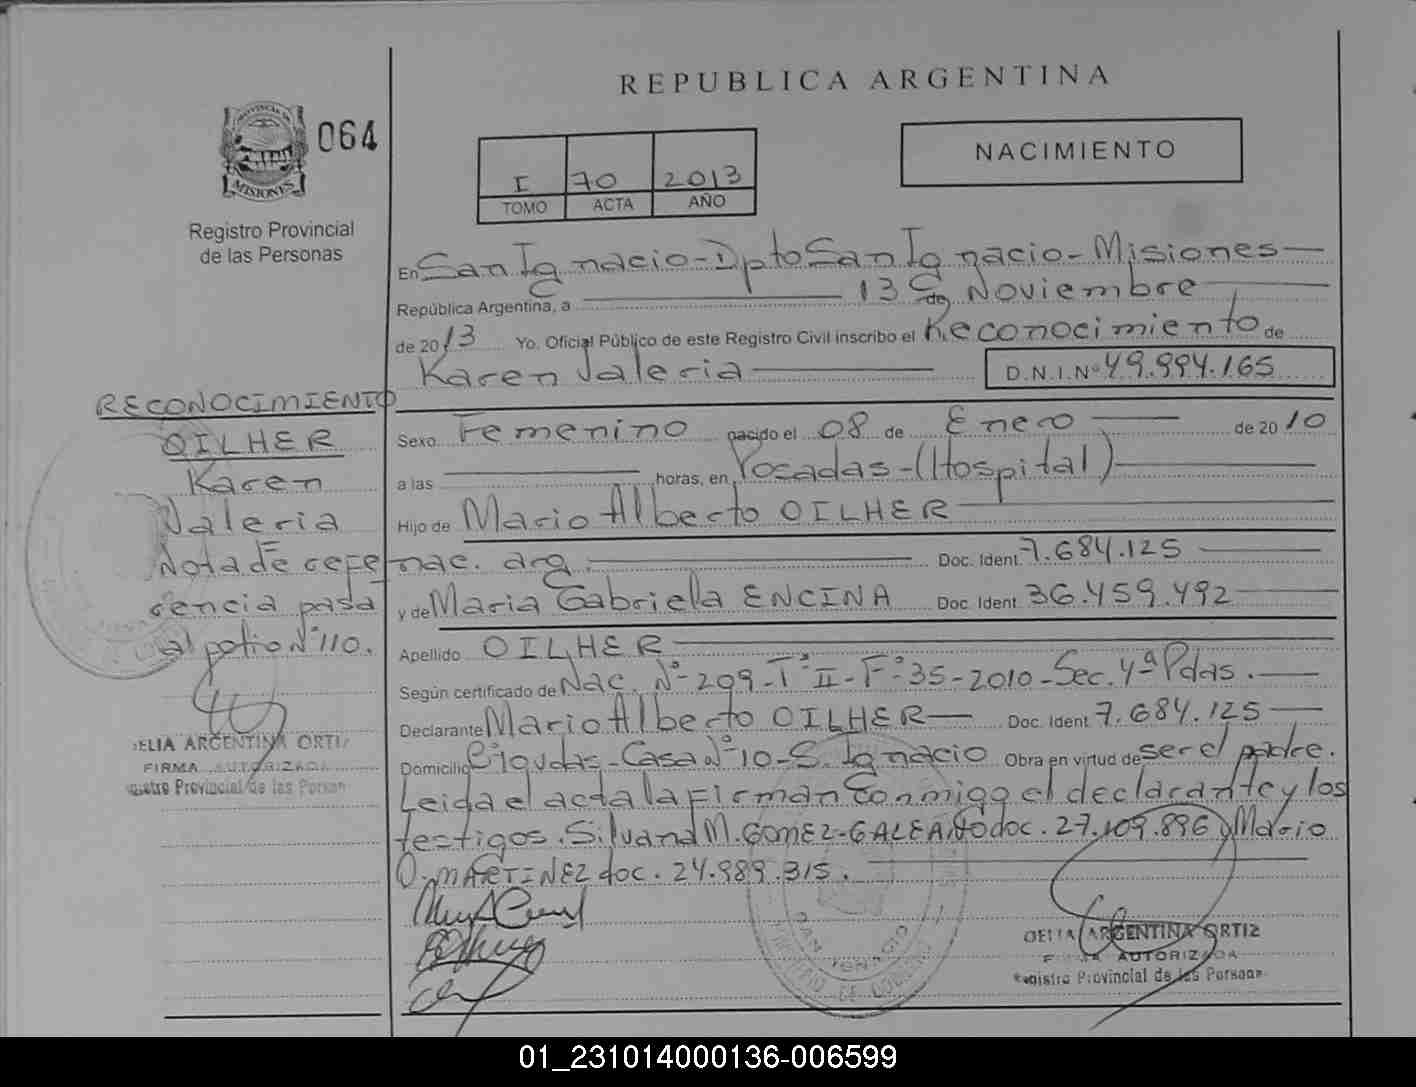 REPUBLICA ARGENTINA
PROVINCIA DE
MISIONES
064
Registro Provincial
de las Personas
I 70 2013
TOMO ACTA AÑO
NACIMIENTO
En San Ignacio - Dpto San Ignacio - Misiones
República Argentina, a 13 de Noviembre
de 2013 Yo. Oficial Público de este Registro Civil inscribo el Reconocimiento de
Karen Valeria D.N.I.Nº 49.994.165
Sexo Femenino nacido el 08 de Enero de 2010
a las horas, en Posadas - (Hospital)
Hijo de Mario Alberto OILHER
nac. arg. Doc. Ident 7.684.125
y de Maria Gabriela ENCINA Doc. Ident. 36.459.492
Apellido OILHER
Según certificado de Nac. Nº 209 - Tº II - Fº 35 - 2010 - Sec. 4ª Pdas.
Declarante Mario Alberto OILHER Doc. Ident 7.684.125
Domicilio Casa Nº 10 - S. Ignacio Obra en virtud de ser el padre.
Leida el acta la firman conmigo el declarante y los
testigos. Silvana M. GOMEZ - GALEANO doc. 27.109.896 y Mario
O. MARTINEZ doc. 24.989.315.
RECONOCIMIENTO
OILHER
Karen
Valeria
Nota de refe
rencia pasa
al folio Nº 110.
DELIA ARGENTINA ORTIZ
FIRMA AUTORIZADA
Registro Provincial de las Personas
DELIA ARGENTINA ORTIZ
FIRMA AUTORIZADA
Registro Provincial de las Personas
SAN IGNACIO
01_231014000136-006599